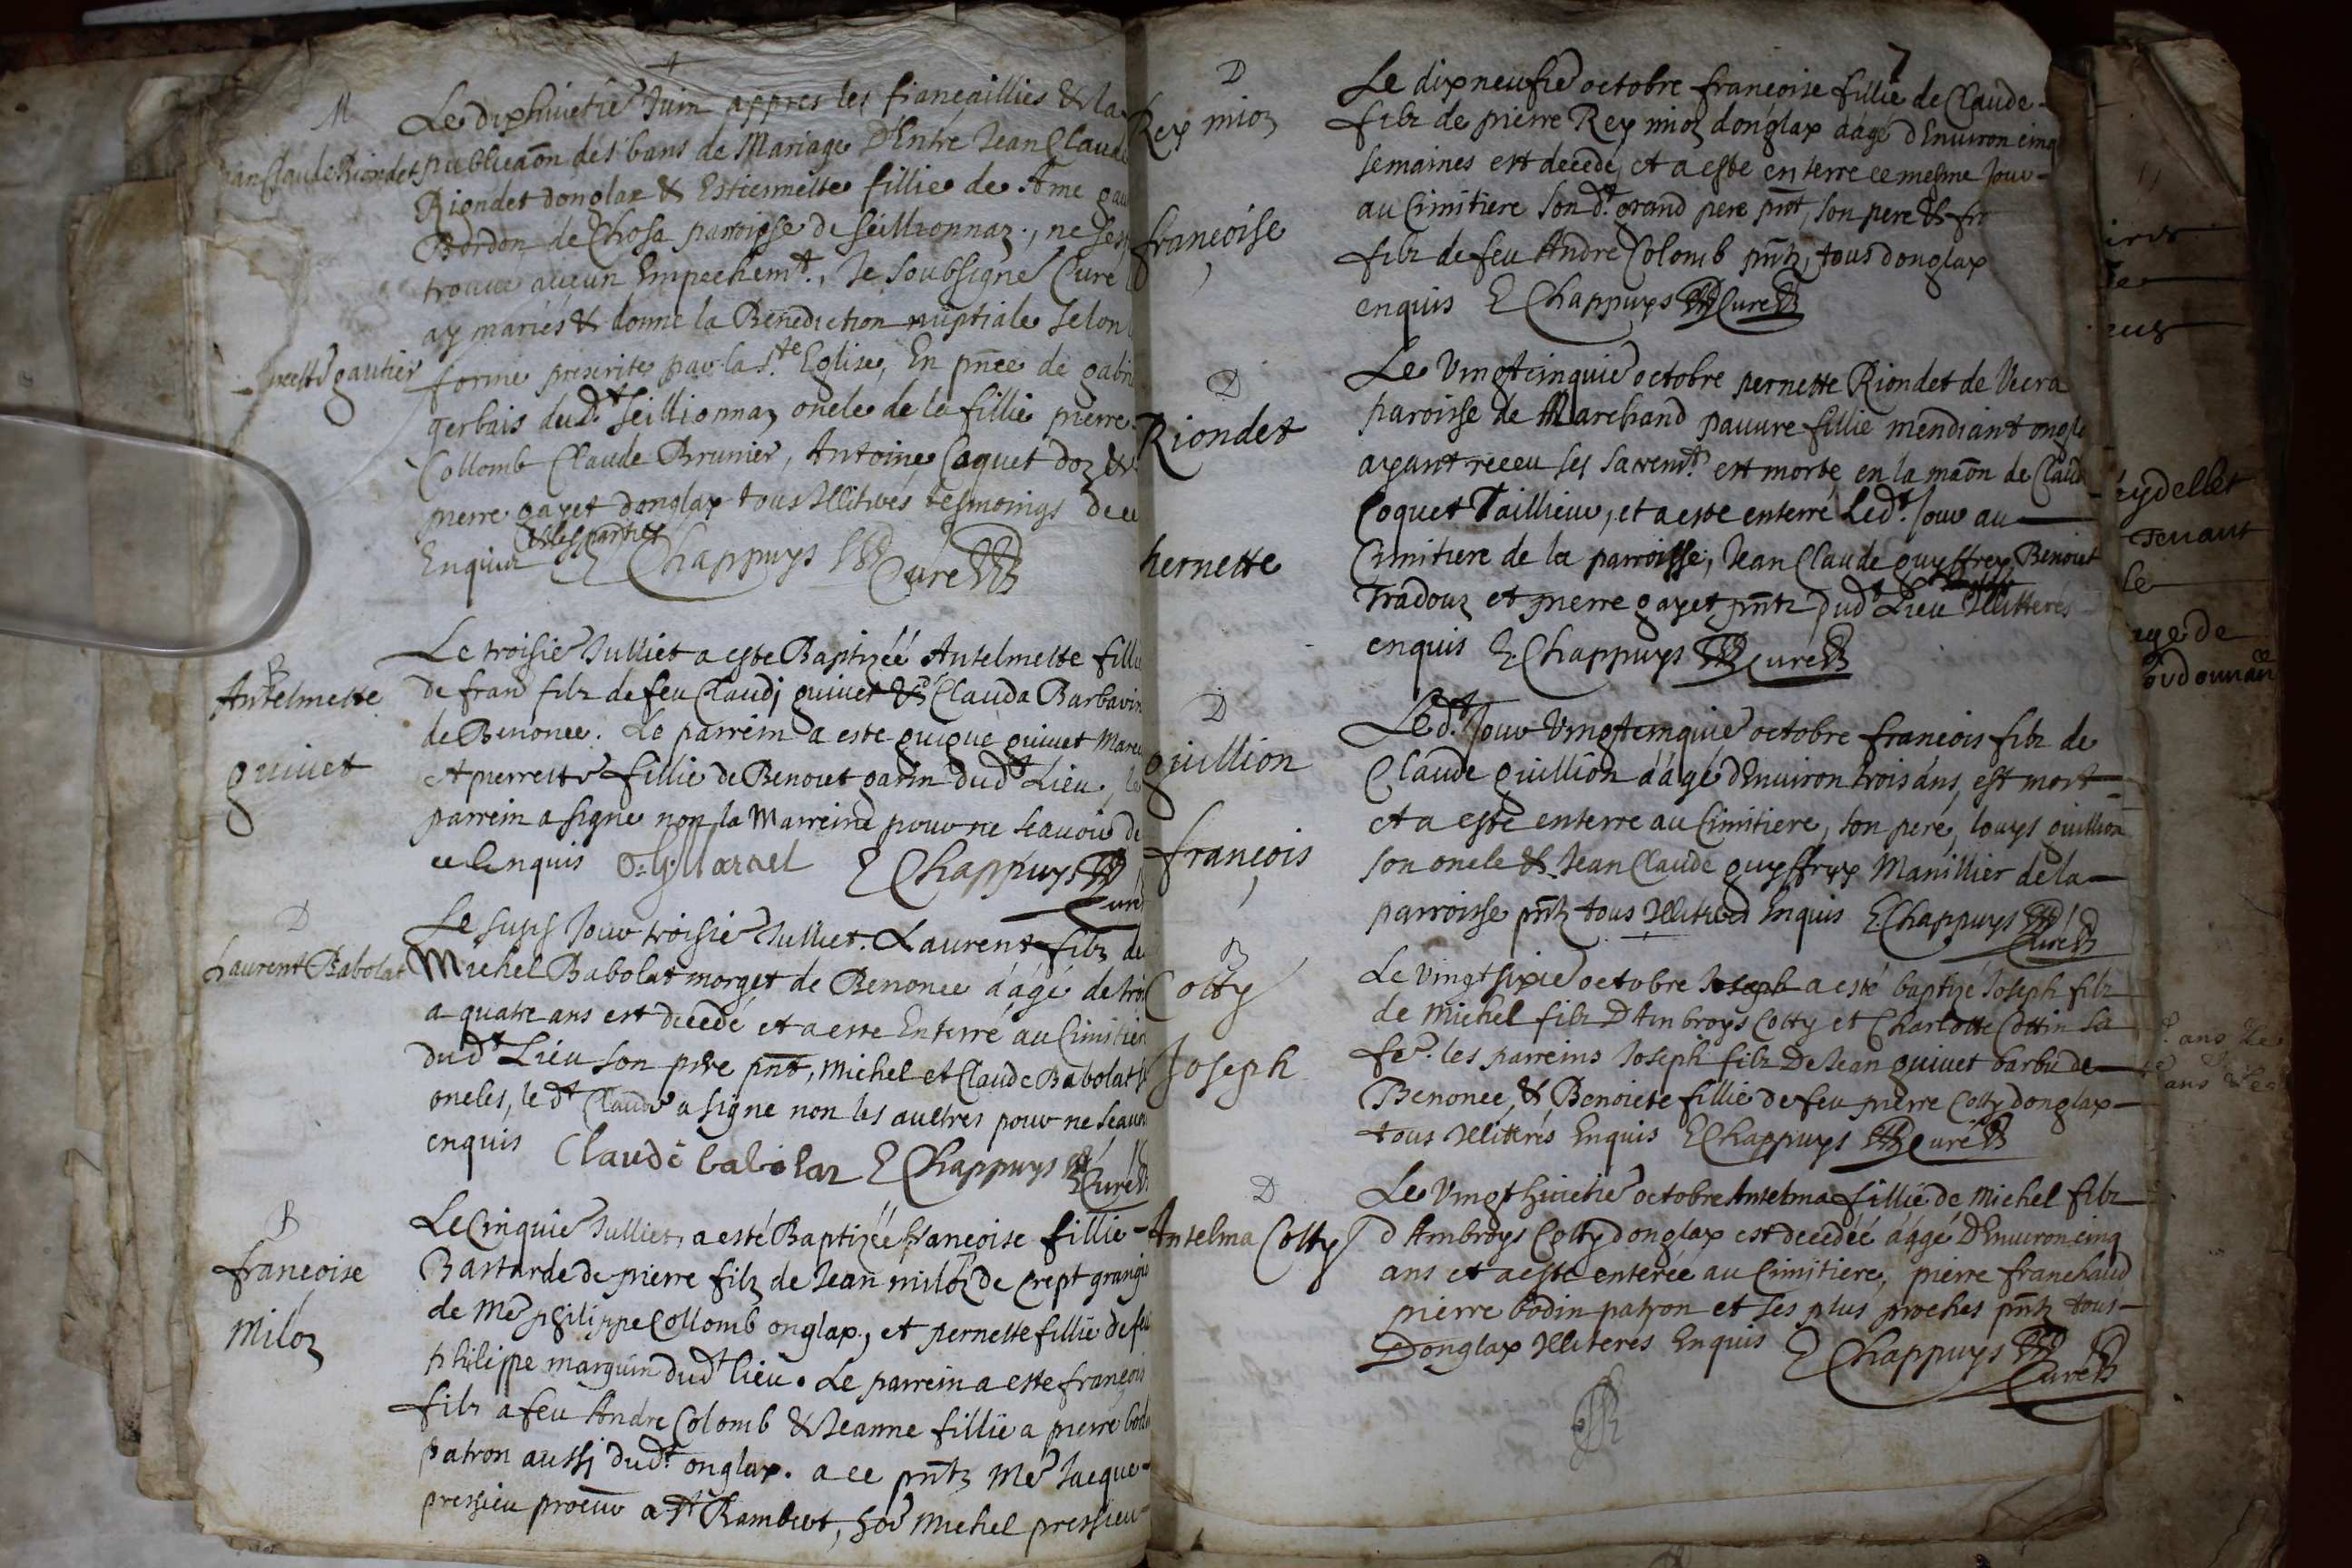 M
Jean Claude Riondet
Le dixhuictie Juin appres les fiancaillies & la
publicaōn des bans de Mariage D'Entre Jean Claude
Riondet donglax & Estiermette fillie de Ame gau
Bordon de Chosa parroisse de Seillionnaz, ne sest
trouve aucun Empechemt., Je soubsigne Cure
ay mariés & donne la Benediction nuptiale selon
gautier
forme prescrite par la Ste Eglise, En pñce de gabri
gerbais dudt Seillionnaz oncle de la fillie pierre
Collomb Claude Brunier, Antoine Coquet doz &
pierre gayet donglax tous Illitires tesmoings de ce
Enquis & les parties E Chappuys Cure
B
Antelmette
guivet
Le troisie Julliet a este Baptizéé Antelmette fillie
de frand filz de feu Claudj guivet & Clauda Barbarin
de Benonce. Le parrein a este guigue guivet Marc
et pierrette fillie de Benoict garin dudt Lieu, le
parrein a signe non la Marreine pour ne scavoir de
ce Enquis G. g Marcel E Chappuys
Cure
D
Laurent Babolat
Le susd Jour troisie Julliet. Laurent filz de
Michel Babolat morget de Benonce áágé de troi
a quatre ans est decedé et a este Enterré au Cimitier
dudt Lieu son pere pñt, Michel et Claude Babolat s
oncles, le dt Claude a signe non les aultres pour ne scavoi
enquis Claude babolaz E Chappuys Cure
B
francoise
Miloz
Le Cinquie Julliet, a esté Baptizéé francoise fillie
Bastarde de pierre filz de Jean miloz de Crept grangie
de Me philippe Collomb onglax, et pernette fillie de feu
philippe marguin dudt lieu. Le parrein a este françois
filz a feu Andre Colomb & Jeanne fillie a pierre bodi
patron aussi dudt onglax. a ce pñtz Me Jacque
pressieu procur a St Rambert, hoe Michel pressieu
7
D
Rey mioz
francoise
Le dixneufie octobre francoise fillie de Claude
filz de pierre Rey mioz donglax áágé dEnviron cinq
semaines est decedé, et a este enterre ce mesme Jour
au Cimitiere son dt grand pere pñt, son pere & fr
filz de feu Andre Colomb pñtz, tous donglax
enquis E Chappuys Cure
D
Riondet
Pernette
Le Vingtcinquie octobre pernette Riondet de Vcera
paroisse de Marchand pauvre fillie mendiant ongla
ayant receu ses sacremts est morte en la maōn de Claude
Coquet Taillieur, et a este enterré Ledt. Jour au
Cimitiere de la parroisse, Jean Claude guyffrey Benoict
Tradouz et pierre gayet pñtz dudt Lieu Illitterés
enquis E. Chappuys Cure
D
guillion
françois
Ledt Jour Vingtcinquie octobre francois filz de
Claude guillion áágé dEnviron trois ans, est mort
et a este enterre au Cimitiere, son pere, louys guillion
son oncle & Jean Claude guyffrey Manillier de la
parroisse pñtz tous Illitires Enquis E Chappuys
Cure
B
Cotty
Joseph
Le vingtsixie octobre Joseph a esté baptizé Joseph filz
de Michel filz DAmbroys Cotty et Charlotte Cottin sa
fe. les parreins Joseph filz De Jean guivet barbu de
Benonce, & Benoicte fillie de feu pierre Cotty donglax
tous Illitterés Enquis E Chappuys Cure
D
Antelma Cotty
Le Vingthuictie octobre Antelma fillie de Michel filz
d'Ambroys Cotty donglax est decedéé áágé DEnviron cinq
ans et a este enterée au Cimitiere, pierre franchand
pierre bodin patron et ses plus proches pñtz tous
Donglax Illiteres Enquis E Chappuys
Cure